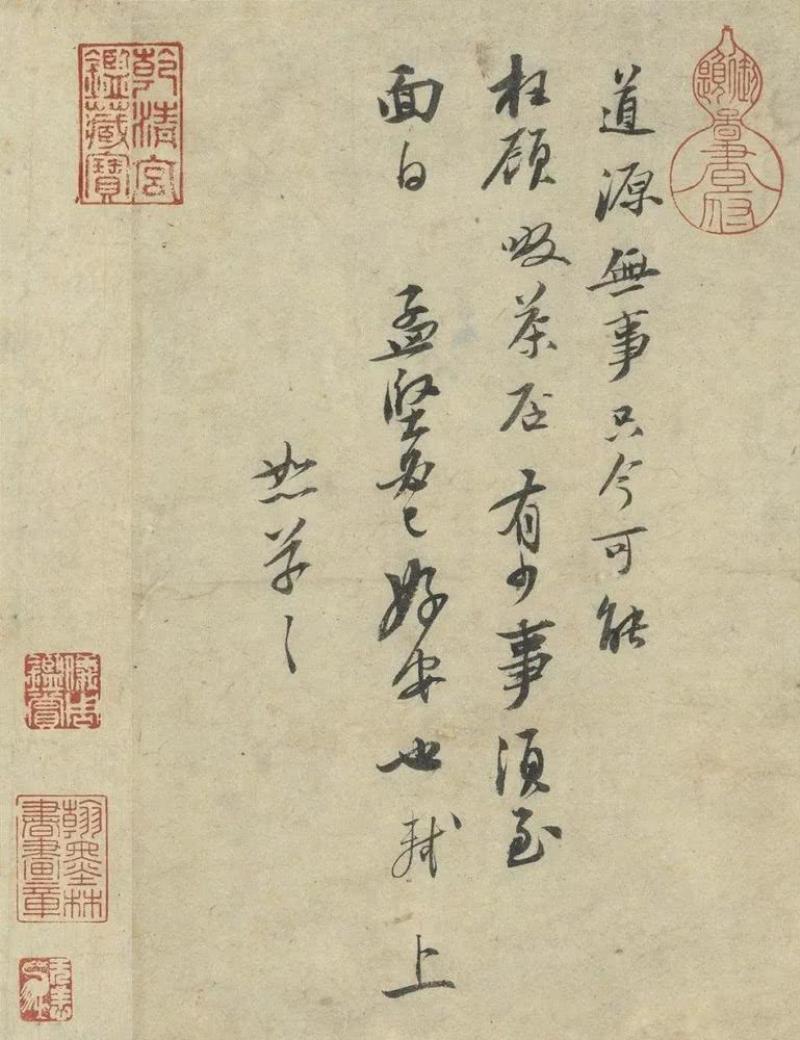 道源無事只今可能
枉顧啜茶否有少事須至
面白 孟堅必已好安也軾 上
恕草々
乾清宮鑑藏寶
儀周鑑賞
翰墨林書畫章